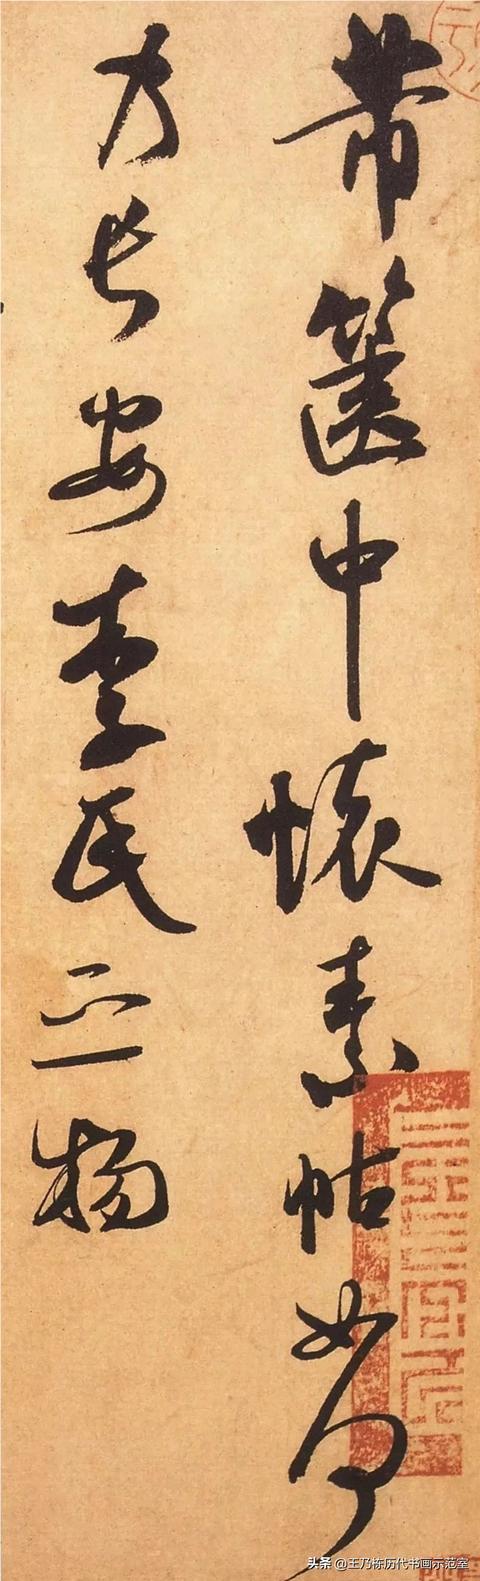 芾篋中懷素帖如何
乃長安李氏之物
头条 @王乃栋历代书画示范室